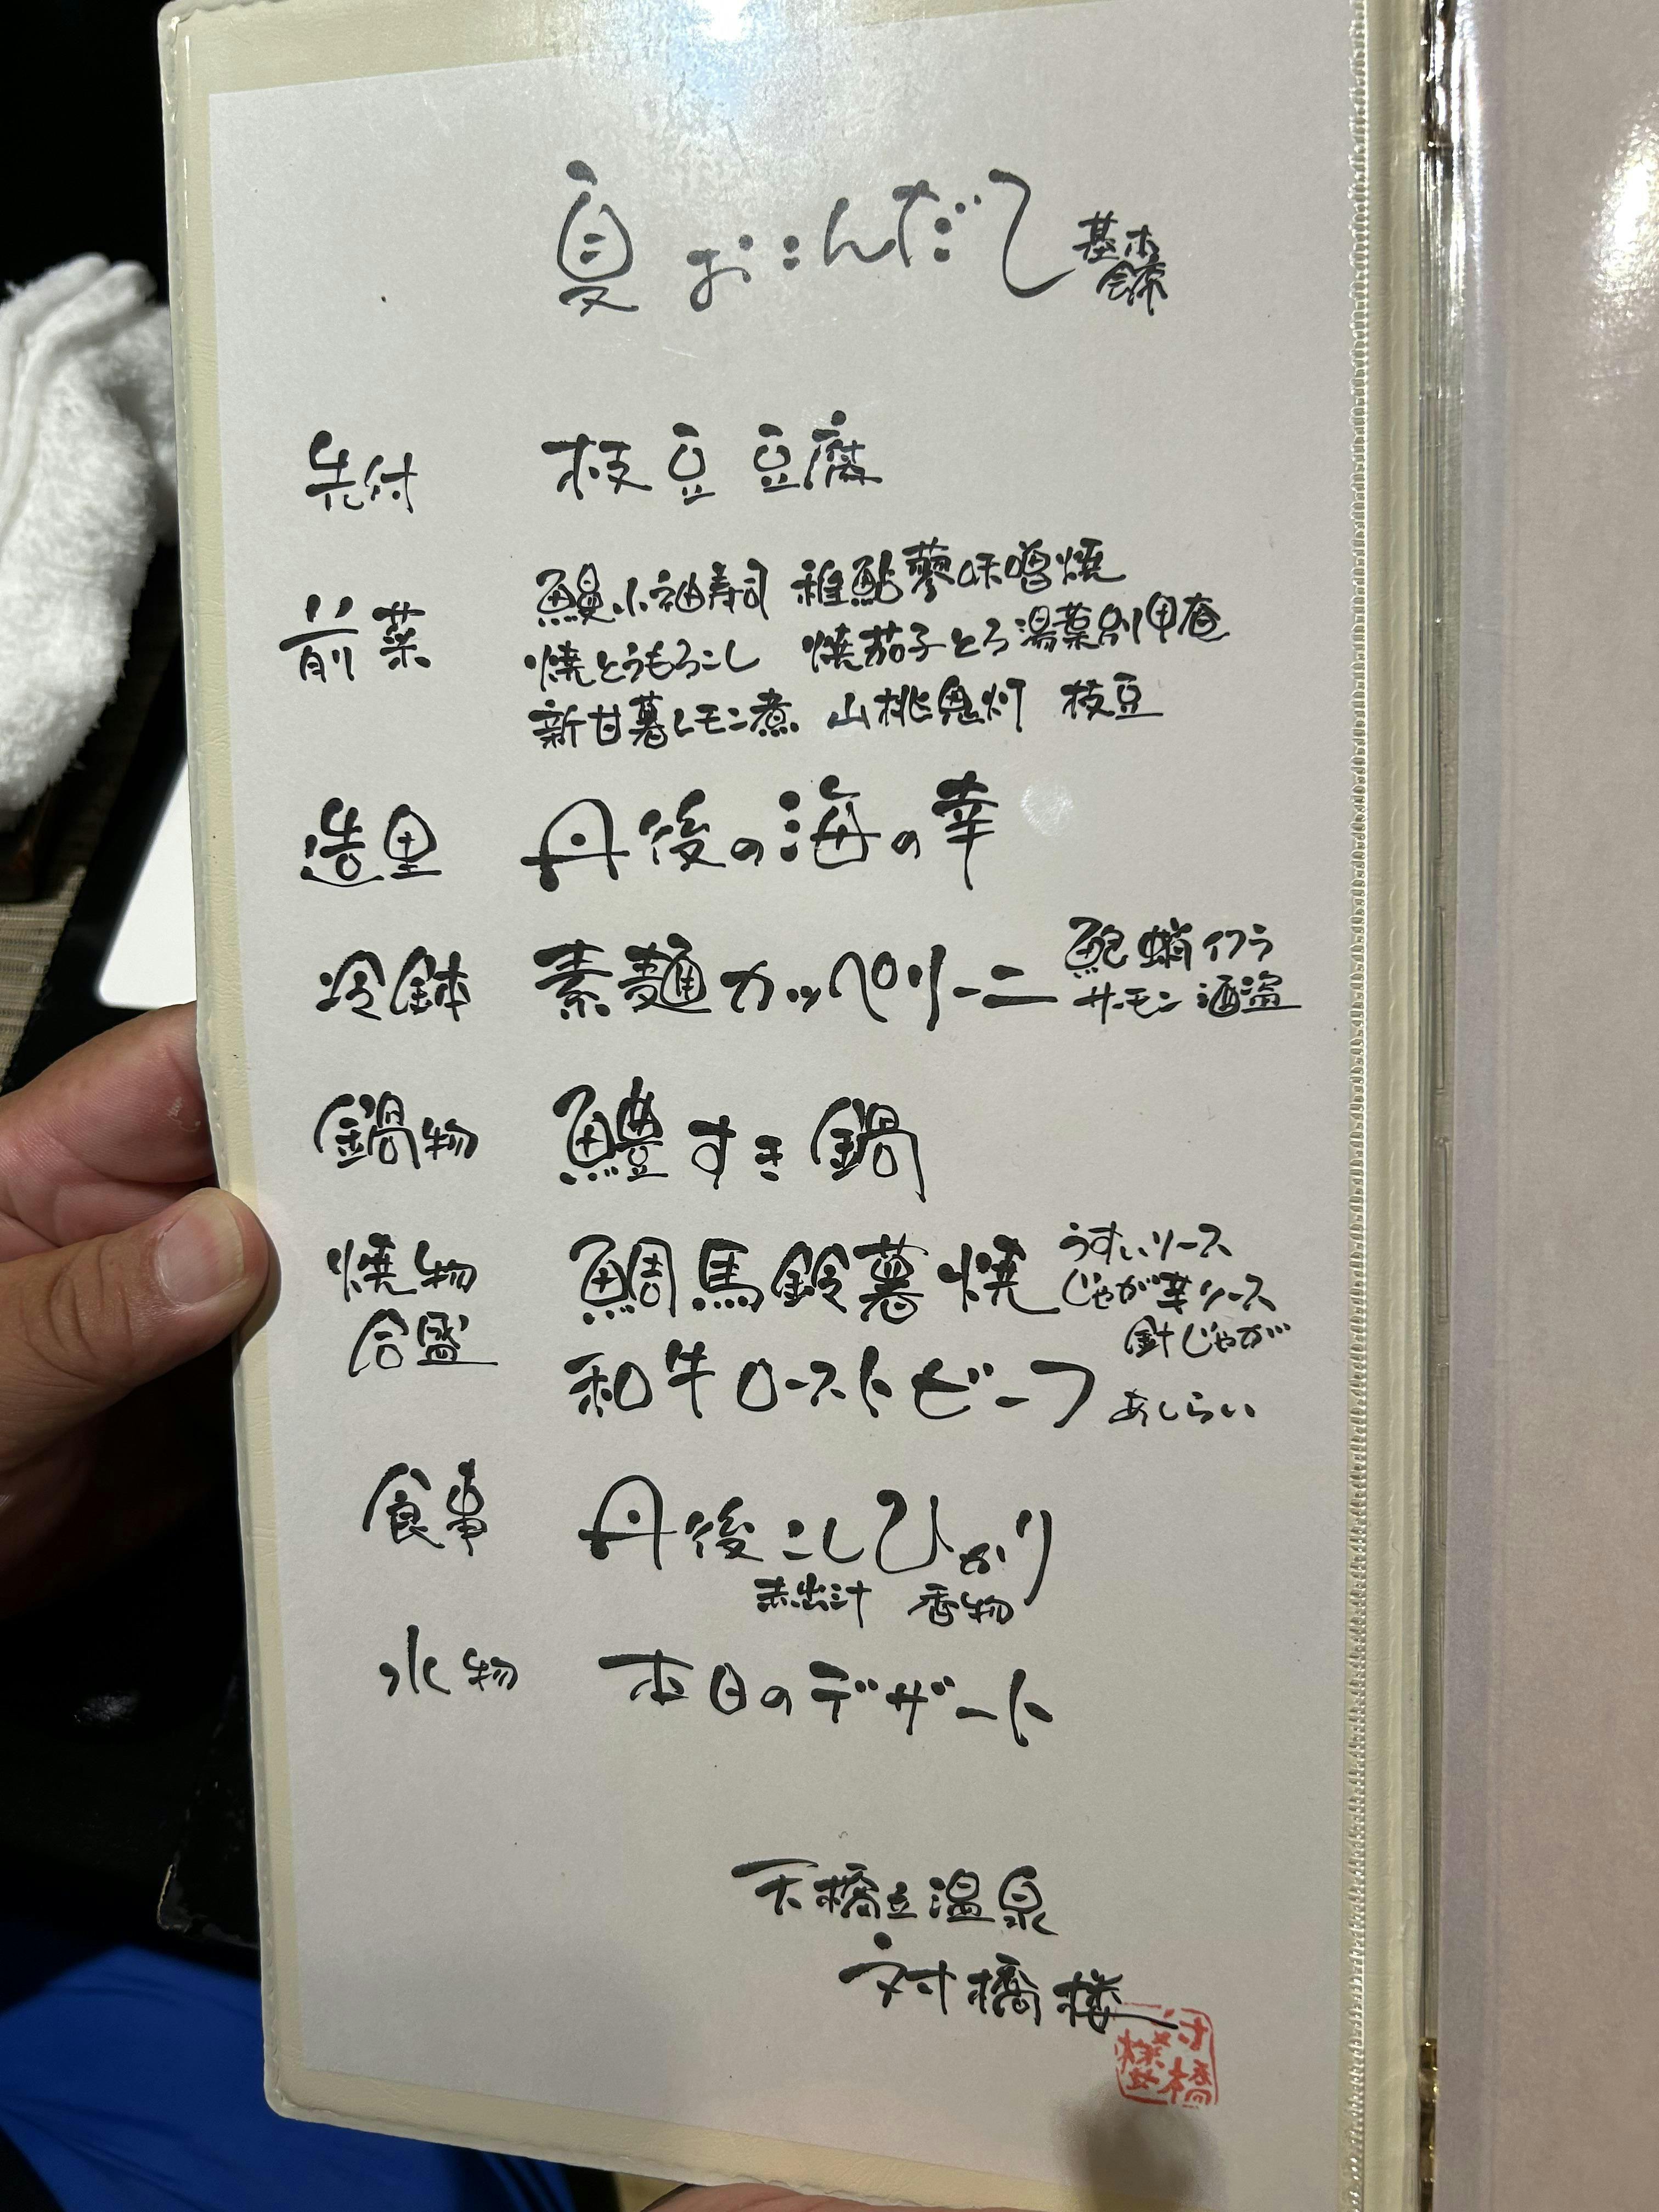 夏 おこんだて 基本会席
先付 枝豆豆腐
前菜 鰻小袖寿司 稚鮎蓼味噌焼
焼とうもろこし 焼茄子とろ湯葉別甲庵
新甘薯レモン煮 山桃鬼灯 枝豆
造里 丹後の海の幸
冷鉢 素麺カッペリーニ 鮑 蛸 イクラ
サーモン 酒盗
鍋物 鱧すき鍋
焼物 鯛馬鈴薯焼 うすいソース
じゃが芋ソース
針じゃが
合盛 和牛ローストビーフ あしらい
食事 丹後こしひかり
赤出汁 香物
水物 本日のデザート
天橋立温泉
対橋楼
対橋楼